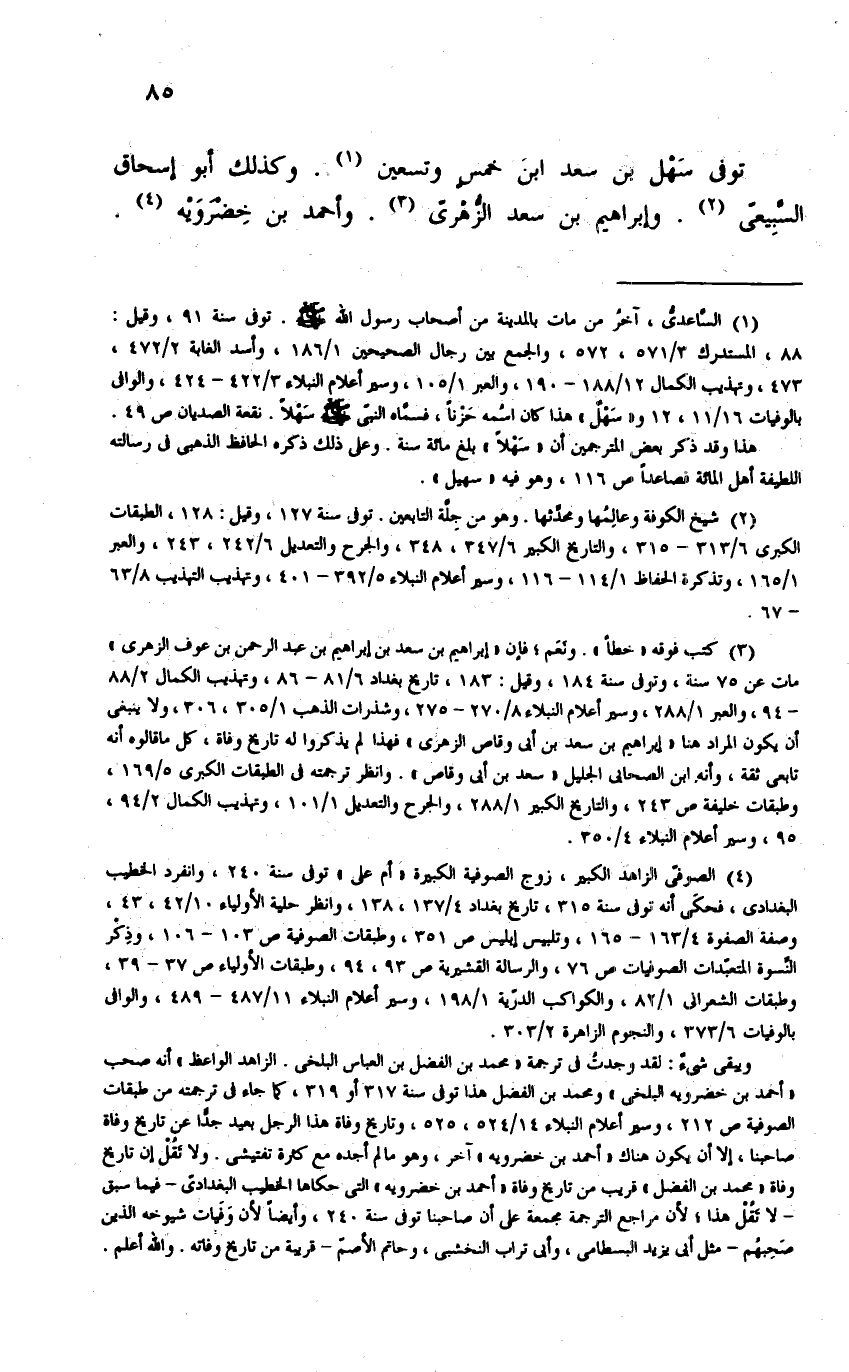 ٨٥
توفى سَهْل بن سعد ابنَ خمسٍ وتسعين (١) . وكذلك أبو إسحاق
السَّبِيعىّ (٢) . وإبراهيم بن سعد الزُّهْرىّ (٣) . وأحمد بن خِضْرَوَيْه (٤) .
(١) السَّاعدىُّ ، آخرُ من مات بالمدينة من أصحاب رسول الله ﷺ . توفى سنة ٩١ ، وقيل :
٨٨ ، المستدرك ٥٧١/٣ ، ٥٧٢ ، والجمع بين رجال الصحيحين ١٨٦/١ ، وأسد الغابة ٤٧٢/٢ ،
٤٧٣ ، وتهذيب الكمال ١٨٨/١٢ – ١٩٠ ، والعبر ١٠٥/١ ، وسير أعلام النبلاء ٤٢٢/٣ – ٤٢٤ ، والوافى
بالوفيات ١١/١٦ ، ١٢ و« سَهْلٌ » هذا كان اسمُه حَزْناً ، فسمَّاه النبىّ ﷺ سَهْلاً . نقعة الصديان ص ٤٩ .
هذا وقد ذكر بعض المترجمين أن « سَهْلاً » بلغ مائة سنة . وعلى ذلك ذكره الحافظ الذهبى فى رسالته
اللطيفة أهل المائة فصاعداً ص ١١٦ ، وهو فيه « سهيل » .
(٢) شيخ الكوفة وعالِمُها ومحدِّثها . وهو من جِلَّة التابعين . توفى سنة ١٢٧ ، وقيل : ١٢٨ ، الطبقات
الكبرى ٣١٣/٦ – ٣١٥ ، والتاريخ الكبير ٣٤٧/٦ ، ٣٤٨ ، والجرح والتعديل ٢٤٢/٦ ، ٢٤٣ ، والعبر
١٦٥/١ ، وتذكرة الحفاظ ١١٤/١ – ١١٦ ، وسير أعلام النبلاء ٣٩٢/٥ – ٤٠١ ، وتهذيب التهذيب ٦٣/٨
– ٦٧ .
(٣) كتب فوقه « خطأ » . ونَعَم ؛ فإن « إبراهيم بن سعد بن إبراهيم بن عبد الرحمن بن عوف الزهرى »
مات عن ٧٥ سنة ، وتوفى سنة ١٨٤ ، وقيل : ١٨٣ ، تاريخ بغداد ٨١/٦ – ٨٦ ، وتهذيب الكمال ٨٨/٢
– ٩٤ ، والعبر ٢٨٨/١ ، وسير أعلام النبلاء ٢٧٠/٨ – ٢٧٥ ، وشذرات الذهب ٣٠٥/١ ، ٣٠٦ ، ولا ينبغى
أن يكون المراد هنا « إبراهيم بن سعد بن أبى وقاص الزهرى » فهذا لم يذكروا له تاريخ وفاة ، كل ماقالوه أنه
تابعى ثقة ، وأنه ابن الصحابى الجليل « سعد بن أبى وقاص » . وانظر ترجمته فى الطبقات الكبرى ١٦٩/٥ ،
وطبقات خليفة ص ٢٤٣ ، والتاريخ الكبير ٢٨٨/١ ، والجرح والتعديل ١٠١/١ ، وتهذيب الكمال ٩٤/٢ ،
٩٥ ، وسير أعلام النبلاء ٣٥٠/٤ .
(٤) الصوفىّ الزاهد الكبير ، زوج الصوفية الكبيرة « أم على » توفى سنة ٢٤٠ ، وانفرد الخطيب
البغدادى ، فحكَى أنه توفى سنة ٣١٥ ، تاريخ بغداد ١٣٧/٤ ، ١٣٨ ، وانظر حلية الأولياء ٤٢/١٠ ، ٤٣ ،
وصفة الصفوة ١٦٣/٤ – ١٦٥ ، وتلبيس إبليس ص ٣٥١ ، وطبقات الصوفية ص ١٠٣ – ١٠٦ ، وذِكْر
النِّسوة المتعبِّدات الصوفيات ص ٧٦ ، والرسالة القشيرية ص ٩٣ ، ٩٤ ، وطبقات الأولياء ص ٣٧ – ٣٩ ،
وطبقات الشعرانى ٨٢/١ ، والكواكب الدرّية ١٩٨/١ ، وسير أعلام النبلاء ٤٨٧/١١ – ٤٨٩ ، والوافى
بالوفيات ٣٧٣/٦ ، والنجوم الزاهرة ٣٠٣/٢ .
ويبقى شىءٌ : لقد وجدتُ فى ترجمة « محمد بن الفضل بن العباس البلخى . الزاهد الواعظ » أنه صحب
« أحمد بن خضرويه البلخى » ومحمد بن الفضل هذا توفى سنة ٣١٧ أو ٣١٩ ، كما جاء فى ترجمته من طبقات
الصوفية ص ٢١٢ ، وسير أعلام النبلاء ٥٢٤/١٤ ، ٥٢٥ ، وتاريخ وفاة هذا الرجل بعيد جدًّا عن تاريخ وفاة
صاحبنا ، إلا أن يكون هناك « أحمد بن خضرويه » آخر ، وهو مالم أجده مع كثرة تفتيشى . ولا تَقُلْ إن تاريخ
وفاة « محمد بن الفضل » قريب من تاريخ وفاة « أحمد بن خضرويه » التى حكاها الخطيب البغدادىّ – فيما سبق
– لا تَقُلْ هذا ؛ لأن مراجع الترجمة مجمعة على أن صاحبنا توفى سنة ٢٤٠ ، وأيضاً لأن وَفَيات شيوخه الذين
صَحِبهُم – مثل أبى يزيد البسطامى ، وأبى تراب النخشبى ، وحاتم الأصمّ – قريبة من تاريخ وفاته . والله أعلم .